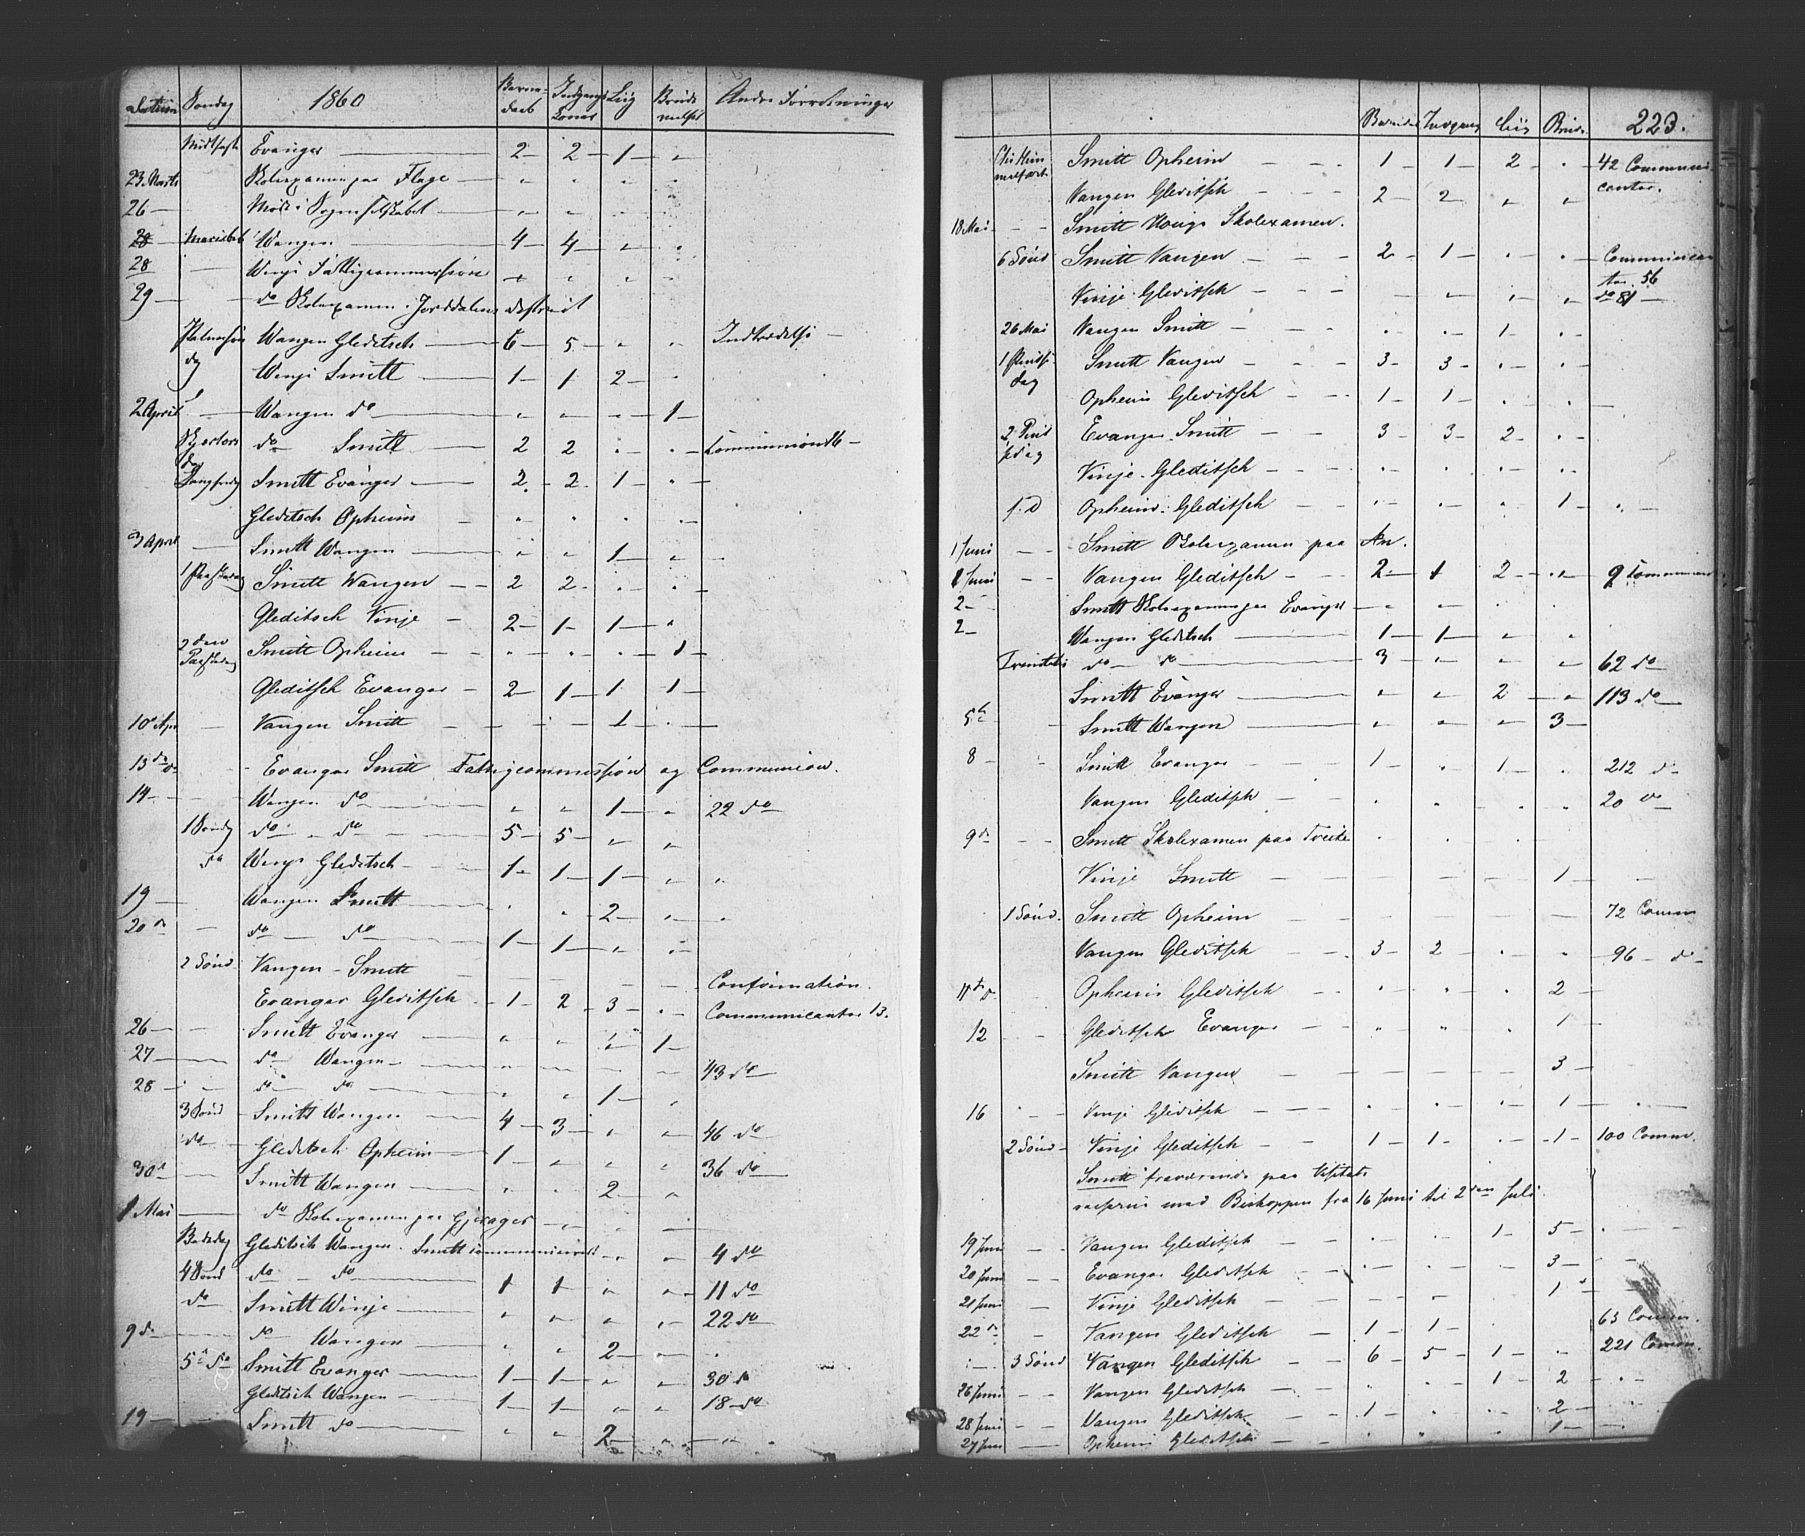 Datum Søndag 1860 Barne- daab Indgangs Koner Liig Brude vielser Andre Forretninger
Midfaste Evanger — 2 — 2 — 1 — "
23 Marts Skolexamen paa Flage — " " " "
26 — Møde i Sogneselskabet — " " " "
28 Mariabeb Wangen — 4 — 4 — " "
28 — Winje Fattigcommission " " " "
29 — — do Skolexamen i Jorddalens district
Palmesøn dag Wangen Gleditsch — 6 — 5 — " " Indtrædelse —
Winje Smitt — 1 — 1 2 — "
2 April — Wangen do — " " " 1 —
Skjertors dag do Smitt 2 2 " " — Communion 16 —
Langfredag Smitt Evanger — 2 — 2 — 1 — " —
Gleditsch Opheim — " " " " —
3 April — Smitt Wangen — " " 1 — "
1 Paaskedag Smitt Wangen — 2 — 2 — " "
Gleditsch Vinje — 2 — 1 — 1 — "
2den Paaskedag Smitt Opheim — " " " 1 —
Gleditsch Evanger — 2 — 1 — 1 1 —
10 Apr — Vangen Smitt — — — 1 — " —
13 do — Evanger Smitt Fattigcommission og Communion.
14 — — Wangen do — " " 1 — " 22 do
1 Søndg do " do — 5 — 5 — " "
do Winje Gleditsch — 1 — 1 — 1 — " "
19 — Wangen Smitt " " 2 — " "
20 do — do — do 1 — 1 — " "
2 Sønd Vangen — Smitt — — — — Confirmation.
Evanger Gleditsch — 1 — 2 3 — " — Communicanter 13.
26 — — Smitt Evanger — " " " 1 —
27 — do Wangen — " — — — 43 do —
28 — — do do — " " 1 — "
3 Sønd Smitt Wangen — 4 — 3 — " " 46 do
do Gleditsch Opheim — 1 — " " " 36 do —
30 — Smitt Wangen — " " 2 — "
1 Mai — do Skolexamen paa Gjerager — " " —
Bededag Gleditsch Wangen. Smitt communicerede " " 4 do
4 Sønd do — do — 1 1 — " " 11 do
do Smitt Winje — " " " " 22 do
9 do — do Wangen " " 2 — "
5te do Smitt Evanger — 1 — 1 — " " 30 do
Gleditsch Wangen — 1 — 1 — " " 18 — do
19 — — Smitt do — " " 2 — " " "
Barnedaab Indgang Liig Brud. 223.
Chr. Him melfart Smitt Opheim — — 1 — 1 — 2 — " 42 Communi
Vangen Gleditsch — 2 — 2 — " " cantor.
18 Mai — Smitt Skolexamen.
6 Sønd Smitt Vangen — — 2 — 1 — " " — Communican
Vinje Gleditsch — — " " " ter. 56
do 81 —
26 Mai Vangen Smitt — — " " 1 — "
1 Pintse dag Smitt Vangen — — 3 — 3 — " "
Opheim Gleditsch — 1 — 1 — " "
2 Pint sedag Evanger Smitt — — 3 — 3 — 2 — " —
Vinje Gleditsch — — " " " "
f. D Opheim Gleditsch — — " " " 1 — "
1 Juni — — Smitt Skolexamen paa
1 Juni — — Vangen Gleditsch — — 2 — 1 2 — " 9 Communi
2 — Smitt Skolexamen paa Evanger — " " "
2 — Wangen Gleditsch — 1 — 1 — " "
Trinitatis do — do — 3 — " " " 62 do
Smitt Evanger — " " 2 — " 113 do
5te — Smitt Wangen — " " " 3 —
8 — Smitt Evanger — — 1 — " 1 — " 212 do —
Vangen Gleditsch — — " " " " 20 do
9 do — Smitt Skolexamen paa " " "
Vinje Smitt — — — — 1 — —
1 Sønd. Smitt Opheim — — — — — 72 Comm
Vangen Gleditsch — — 3 — 2 — " " 96 — do —
Opheim Gleditsch — — " " " 2 —
12 — Gleditsch Evanger — — " " " 1 —
Smitt Vangen — — 3 —
16 — Vinje Gleditsch — — " " " 1 — "
2 Sønd — Vinje Gleditsch — — 1 — 1 — " 1 — 100 Comm.
Smitt fraværende paa Visitats
reise med Biskoppen fra 16 Juni til 2den Juli.
19 Juni — — Vangen Gleditsch — — " " 1 — 5 —
20 Juni — Evanger Gleditsch — — " " 3 —
21 Juni — Vinje Gleditsch — — " " 1
22 do — Vangen Gleditsch — 1 — 1 — 63 Comm.
3 Sønd Vangen Gleditsch — — 6 — 5 — 1 — " 221 Comm.
26 Juni — — Vangen Gleditsch — — " 1 — 2 —
28 Juni — — Vangen Gleditsch — — 1 — " 2 —
27 Juni — Opheim Gleditsch — — " " " 1 —